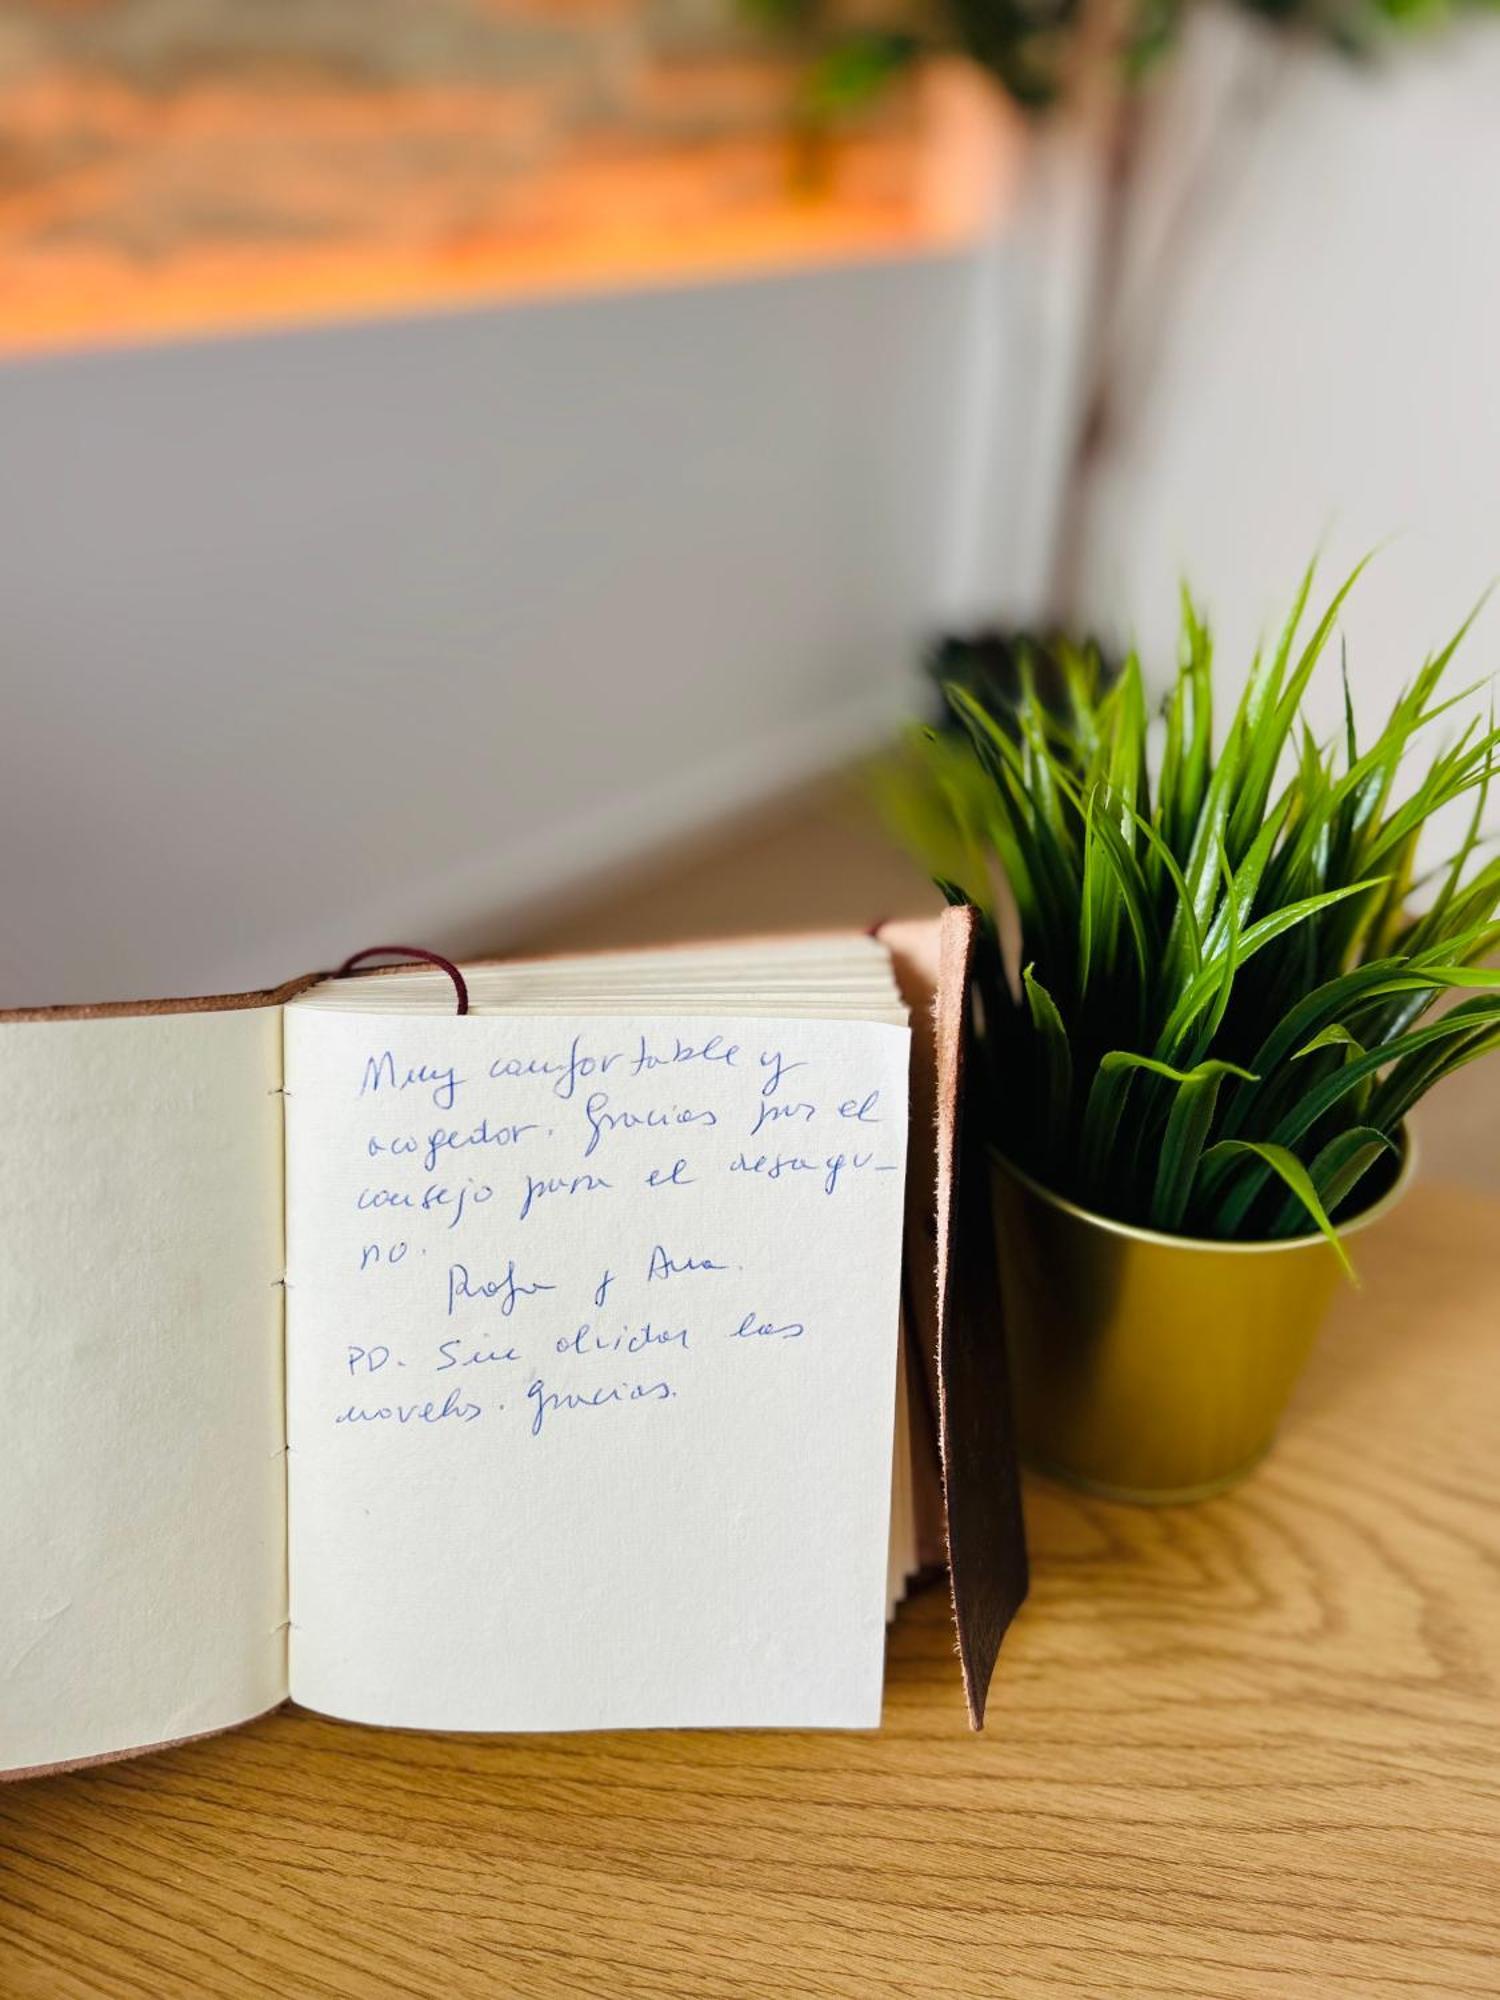 Muy confortable y
acogedor. Gracias por el
consejo para el desayu-
no.
Rafa y Ana.
PD. Sin olvidar las
novelas. Gracias.